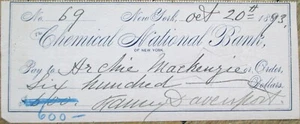 No 69 New York, Oct 20th 1893.
The Chemical National Bank,
OF NEW YORK.
Pay to Archie Mackenzie or Order,
Six hundred Dollars
$600 Fanny Davenport
600-